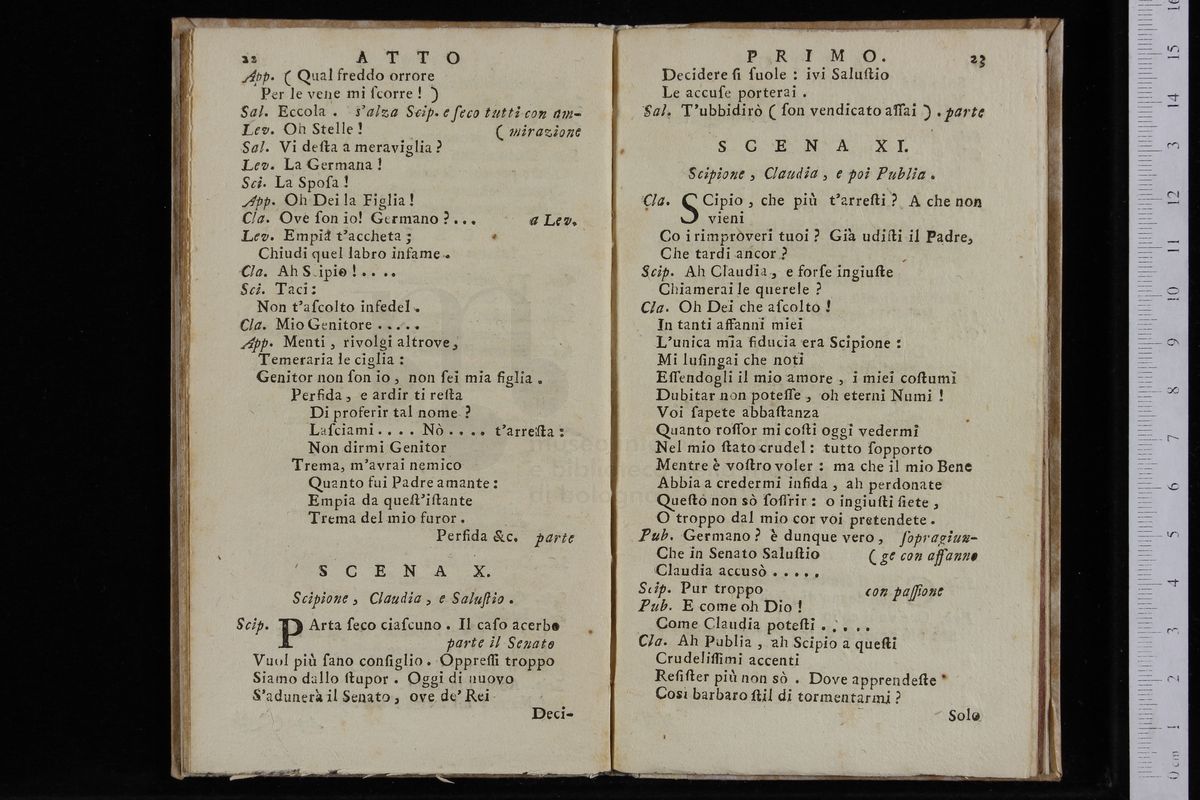 22 ATTO
App. ( Qual freddo orrore
Per le vene mi ſcorre ! )
Sal. Eccola . s'alza Scip. e ſeco tutti con am-
Lev. Oh Stelle ! ( mirazione
Sal. Vi deſta a meraviglia ?
Lev. La Germana !
Sci. La Spoſa !
App. Oh Dei la Figlia !
Cla. Ove ſon io! Germano ? ... a Lev.
Lev. Empia t'accheta ;
Chiudi quel labro infame .
Cla. Ah Scipio ! . . . .
Sci. Taci :
Non t'aſcolto infedel .
Cla. Mio Genitore . . . . .
App. Menti , rivolgi altrove,
Temeraria le ciglia :
Genitor non ſon io , non ſei mia figlia .
Perfida , e ardir ti reſta
Di proferir tal nome ?
Laſciami . . . . Nò . . . . t'arreſta :
Non dirmi Genitor
Trema, m'avrai nemico
Quanto fui Padre amante :
Empia da queſt'iſtante
Trema del mio furor .
Perfida &c. parte
SCENA X.
Scipione , Claudia , e Saluſtio .
Scip. PArta ſeco ciaſcuno . Il caſo acerbo
parte il Senato
Vuol più ſano conſiglio . Oppreſſi troppo
Siamo dallo ſtupor . Oggi di nuovo
S'adunerà il Senato , ove de' Rei
Deci-
PRIMO. 23
Decidere ſi ſuole : ivi Saluſtio
Le accuſe porterai .
Sal. T'ubbidirò ( ſon vendicato aſſai ) . parte
SCENA XI.
Scipione , Claudia , e poi Publia .
Cla. SCipio , che più t'arreſti ? A che non
vieni
Co i rimpròveri tuoi ? Già udiſti il Padre,
Che tardi ancor ?
Scip. Ah Claudia , e forſe ingiuſte
Chiamerai le querele ?
Cla. Oh Dei che aſcolto !
In tanti affanni miei
L'unica mia fiducia era Scipione :
Mi luſingai che noti
Eſſendogli il mio amore , i miei coſtumi
Dubitar non poteſſe , oh eterni Numi !
Voi ſapete abbaſtanza
Quanto roſſor mi coſti oggi vedermi
Nel mio ſtato crudel : tutto ſopporto
Mentre è voſtro voler : ma che il mio Bene
Abbia a credermi infida , ah perdonate
Queſto non sò soffrir : o ingiuſti ſiete ,
O troppo dal mio cor voi pretendete .
Pub. Germano ? è dunque vero , ſopragiun-
Che in Senato Saluſtio ( ge con affanno
Claudia accusò . . . . .
Scip. Pur troppo con paſſione
Pub. E come oh Dio !
Come Claudia poteſti . . . . .
Cla. Ah Publia , ah Scipio a queſti
Crudeliſſimi accenti
Reſiſter più non sò . Dove apprendeſte
Così barbaro ſtil di tormentarmi ?
Solo